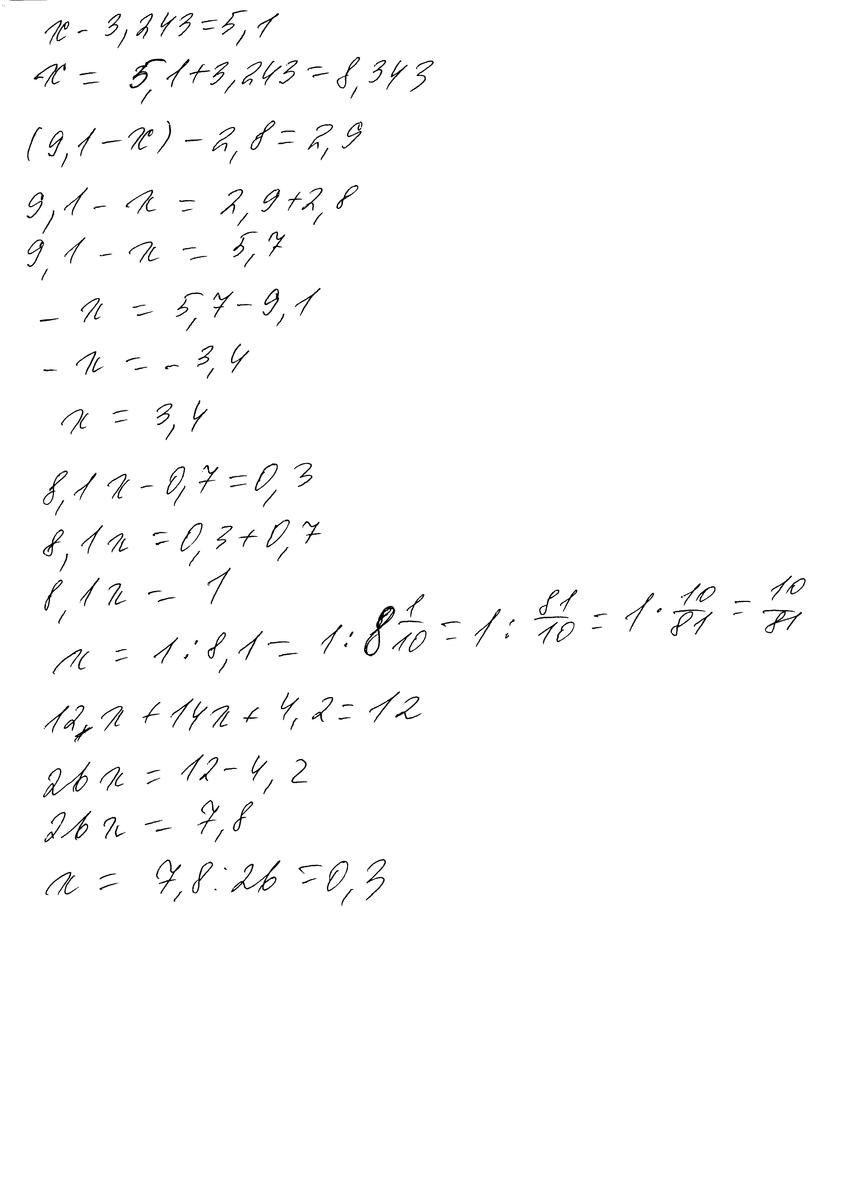 x - 3,243 = 5,1
x = 5,1 + 3,243 = 8,343
(9,1 - x) - 2,8 = 2,9
9,1 - x = 2,9 + 2,8
9,1 - x = 5,7
- x = 5,7 - 9,1
- x = - 3,4
x = 3,4
8,1x - 0,7 = 0,3
8,1x = 0,3 + 0,7
8,1x = 1
x = 1 : 8,1 = 1 : 8 1/10 = 1 : 81/10 = 1 · 10/81 = 10/81
12x + 14x + 4,2 = 12
26x = 12 - 4,2
26x = 7,8
x = 7,8 : 26 = 0,3